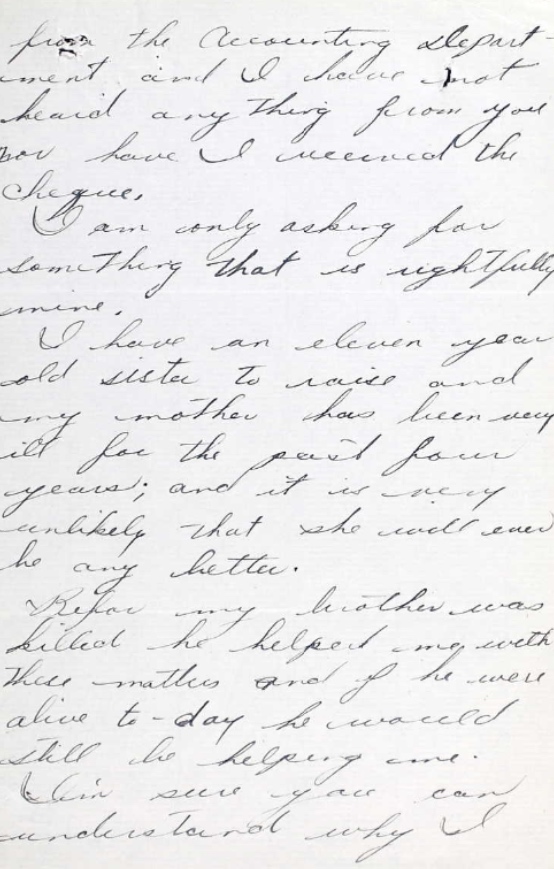 from the Accounting Depart-
ment and I have not
heard anything from you
nor have I received the
cheque.
I am only asking for
something that is rightfully
mine.
I have an eleven year
old sister to raise and
my mother has been very
ill for the past four
years; and it is very
unlikely that she will ever
be any better.
Before my brother was
killed he helped me with
these matters and if he were
alive to-day he would
still be helping me.
I'm sure you can
understand why I